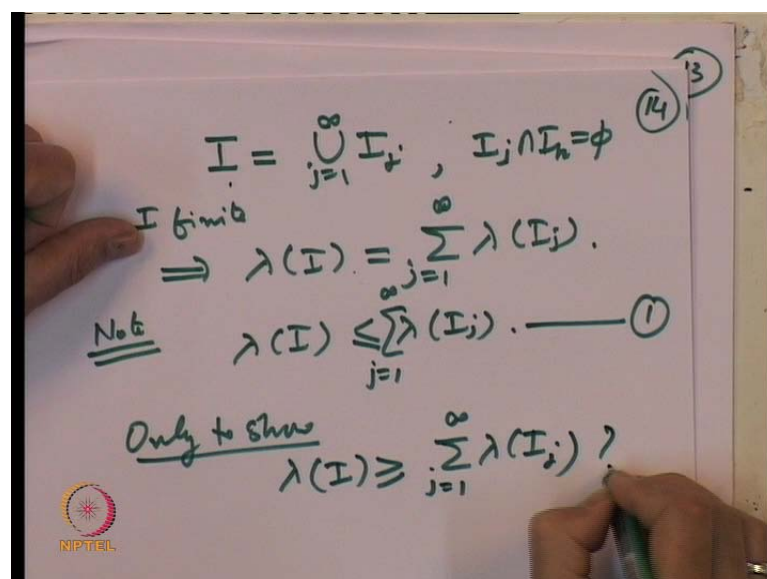 13
14
I = ⋃_{j=1}^{∞} I_j , I_j ∩ I_k = ϕ
I finite
⟹ λ(I) = ∑_{j=1}^{∞} λ(I_j).
Note λ(I) ≤ ∑_{j=1}^{∞} λ(I_j). —— ①
Only to show
λ(I) ≥ ∑_{j=1}^{∞} λ(I_j) ?
NPTEL